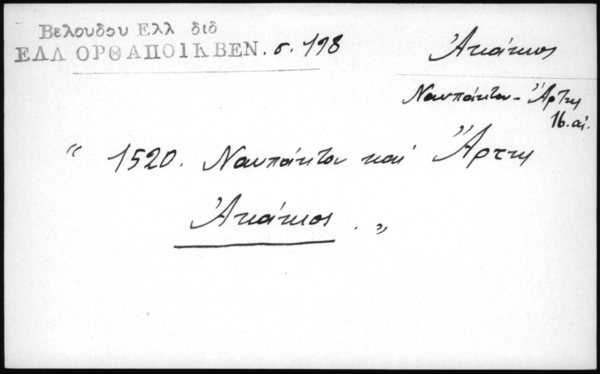 Βελουδου Ελλ διδ
ΕΛΛ ΟΡΘ ΑΠΟΙΚ ΒΕΝ. σ. 198
Ἀκάκιος
Ναυπάκτου - Ἄρτης
16. αἰ.
“ 1520. Ναυπάκτου καὶ Ἄρτης
Ἀκάκιος. ”